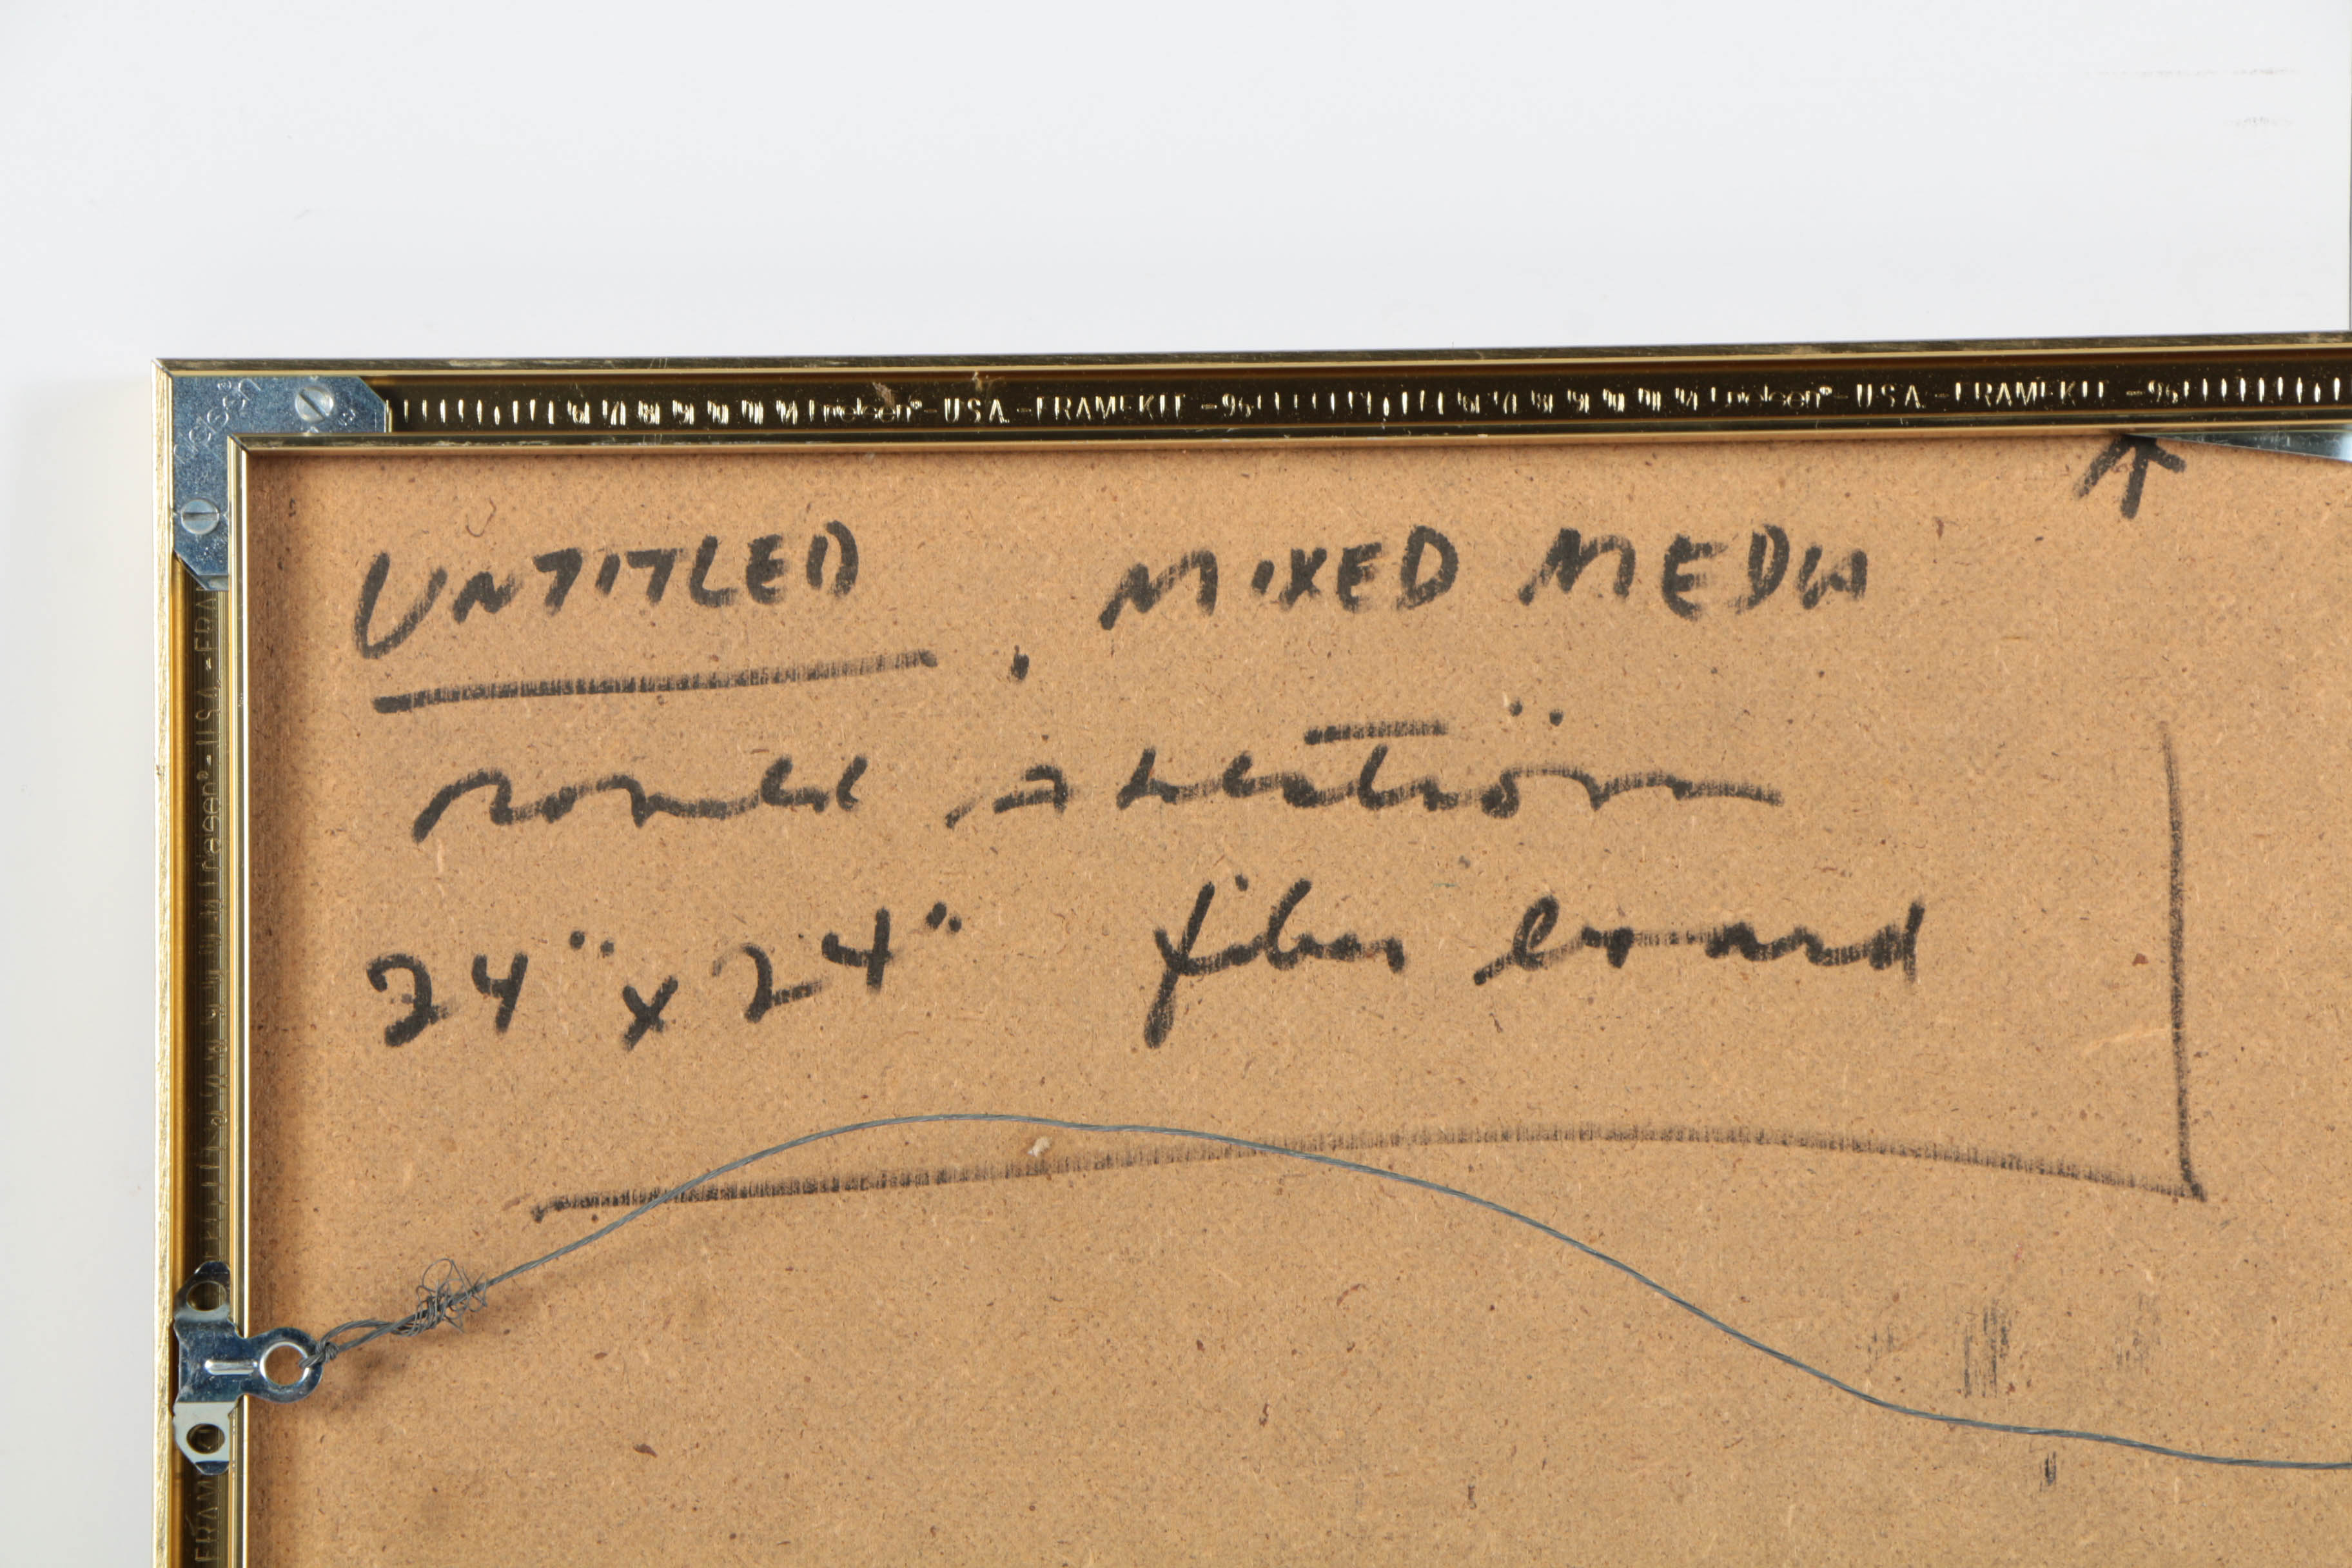 nielsen® - U.S.A. - FRAMEKIT - 96 nielsen® - U.S.A. - FRAMEKIT - 96
UNTITLED . MIXED MEDIA
ronald ahlström
24" x 24" fiber board